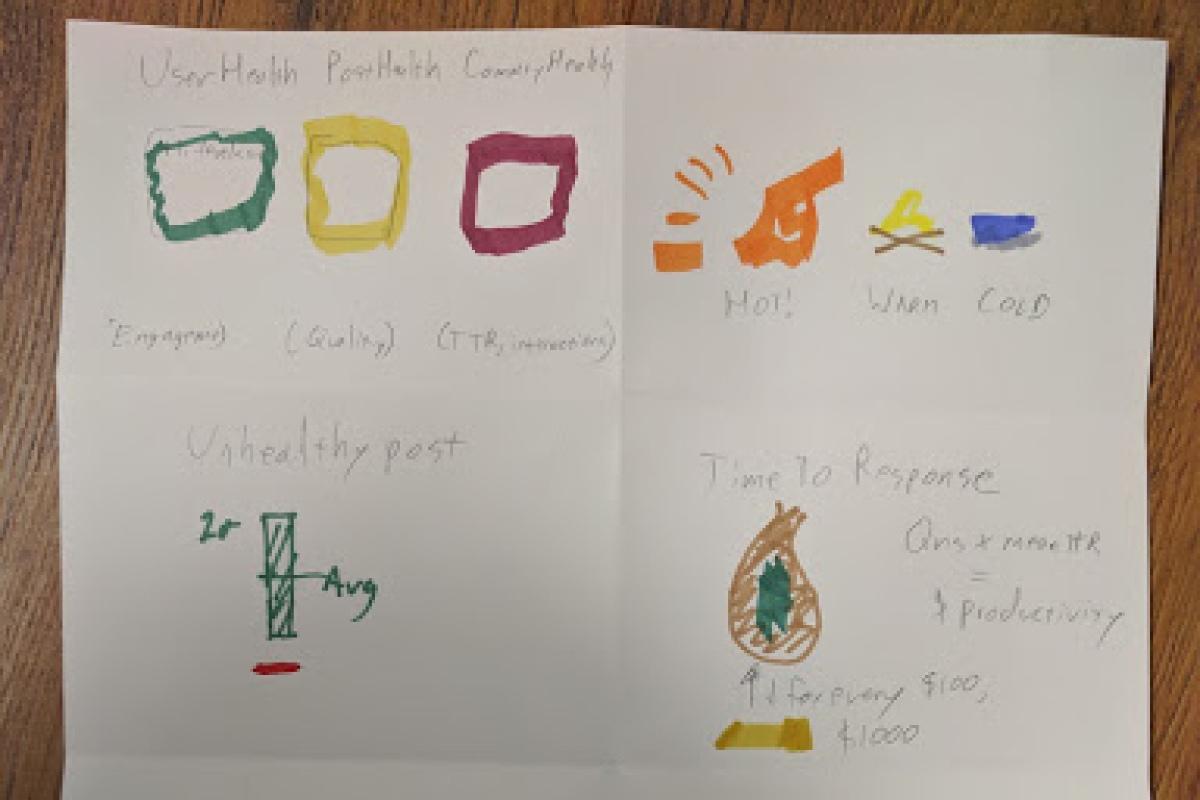 User Health Post Health Commity Health
(Engagement) (Quality) (TTR, interactions)
HOT! WARM COLD
Unhealthy post
2σ
Avg
Time To Response
Qns x mean TTR
=
$ productivity
for every $100,
$1000